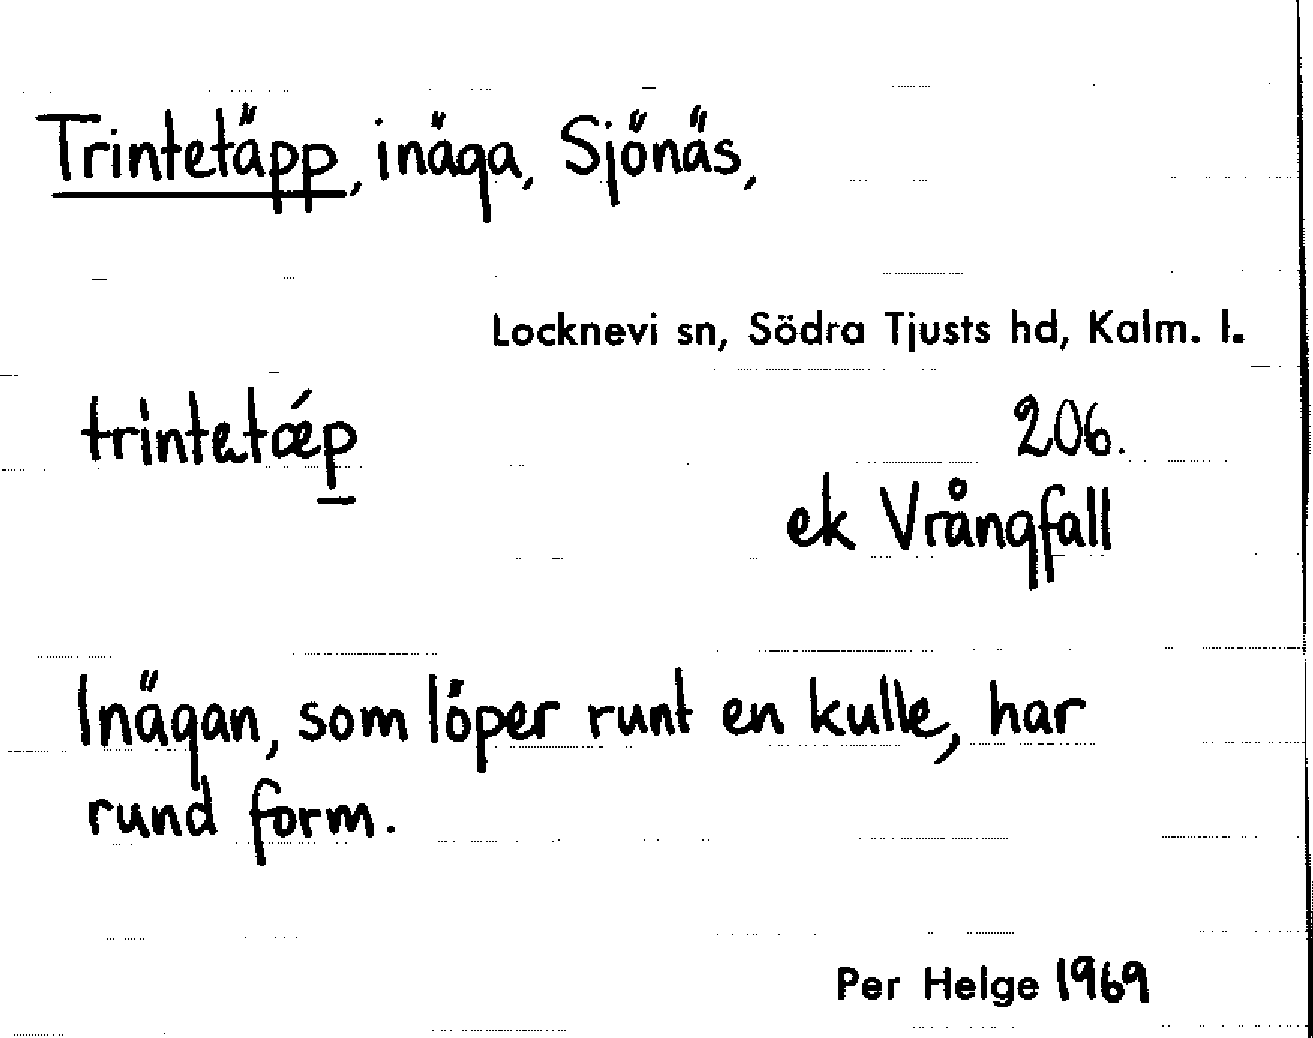 Trintetäpp, inäga, Sjönäs,
Locknevi sn, Södra Tjusts hd, Kalm. l.
trintetǽp̲
206.
ek Vrångfall
Inägan, som löper runt en kulle, har
rund form.
Per Helge 1969